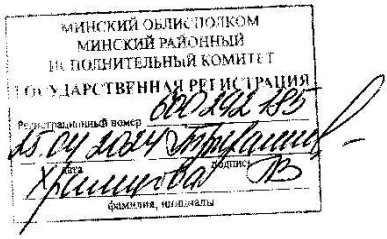 МИНСКИЙ ОБЛИСПОЛКОМ
МИНСКИЙ РАЙОННЫЙ
ИСПОЛНИТЕЛЬНЫЙ КОМИТЕТ
ГОСУДАРСТВЕННАЯ РЕГИСТРАЦИЯ
Регистрационный номер 600292185
25.04.2024
дата подпись
фамилия, инициалы